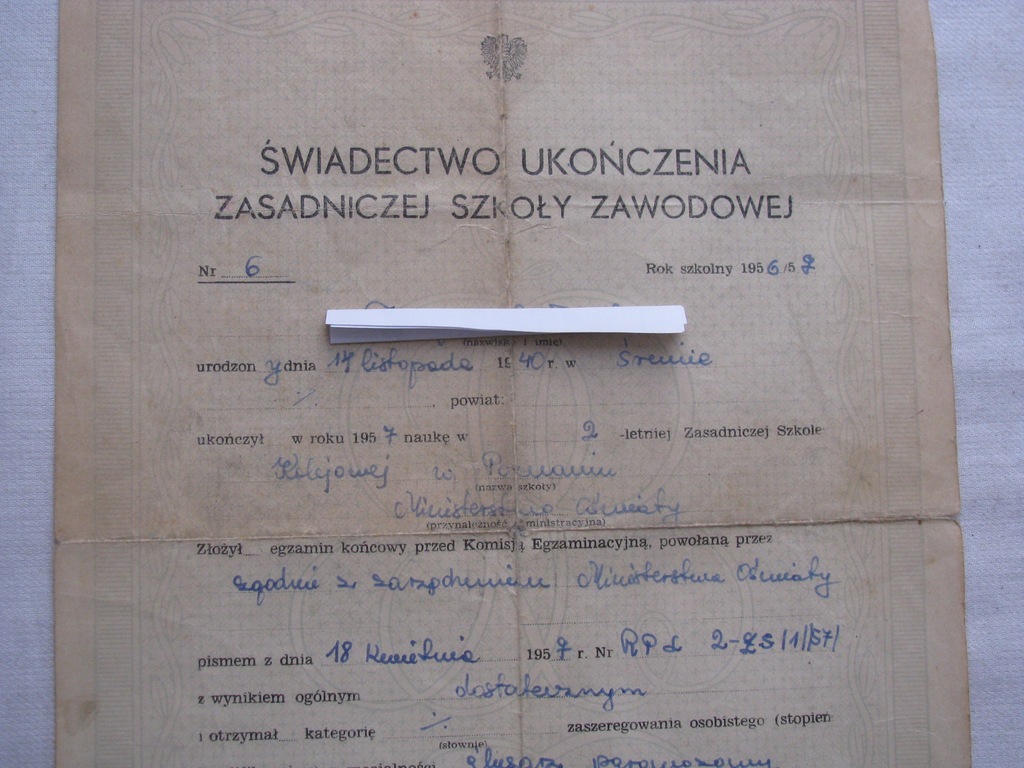 ŚWIADECTWO UKOŃCZENIA
ZASADNICZEJ SZKOŁY ZAWODOWEJ
Nr 6 Rok szkolny 1956/57
(nazwisko i imię)
urodzony dnia 14 listopada 1940 r. w Śremie
·/· , powiat:
ukończył w roku 1957 naukę w 2 -letniej Zasadniczej Szkole
Kolejowej w Poznaniu
(nazwa szkoły)
Ministerstwo Oświaty
(przynależność administracyjna)
Złożył egzamin końcowy przed Komisją Egzaminacyjną, powołaną przez
zgodnie z zarządzeniem Ministerstwa Oświaty
pismem z dnia 18 kwietnia 1957 r. Nr
z wynikiem ogólnym dostatecznym
i otrzymał kategorię ·/· zaszeregowania osobistego (stopień
(słownie)
ślusarz parowozowy